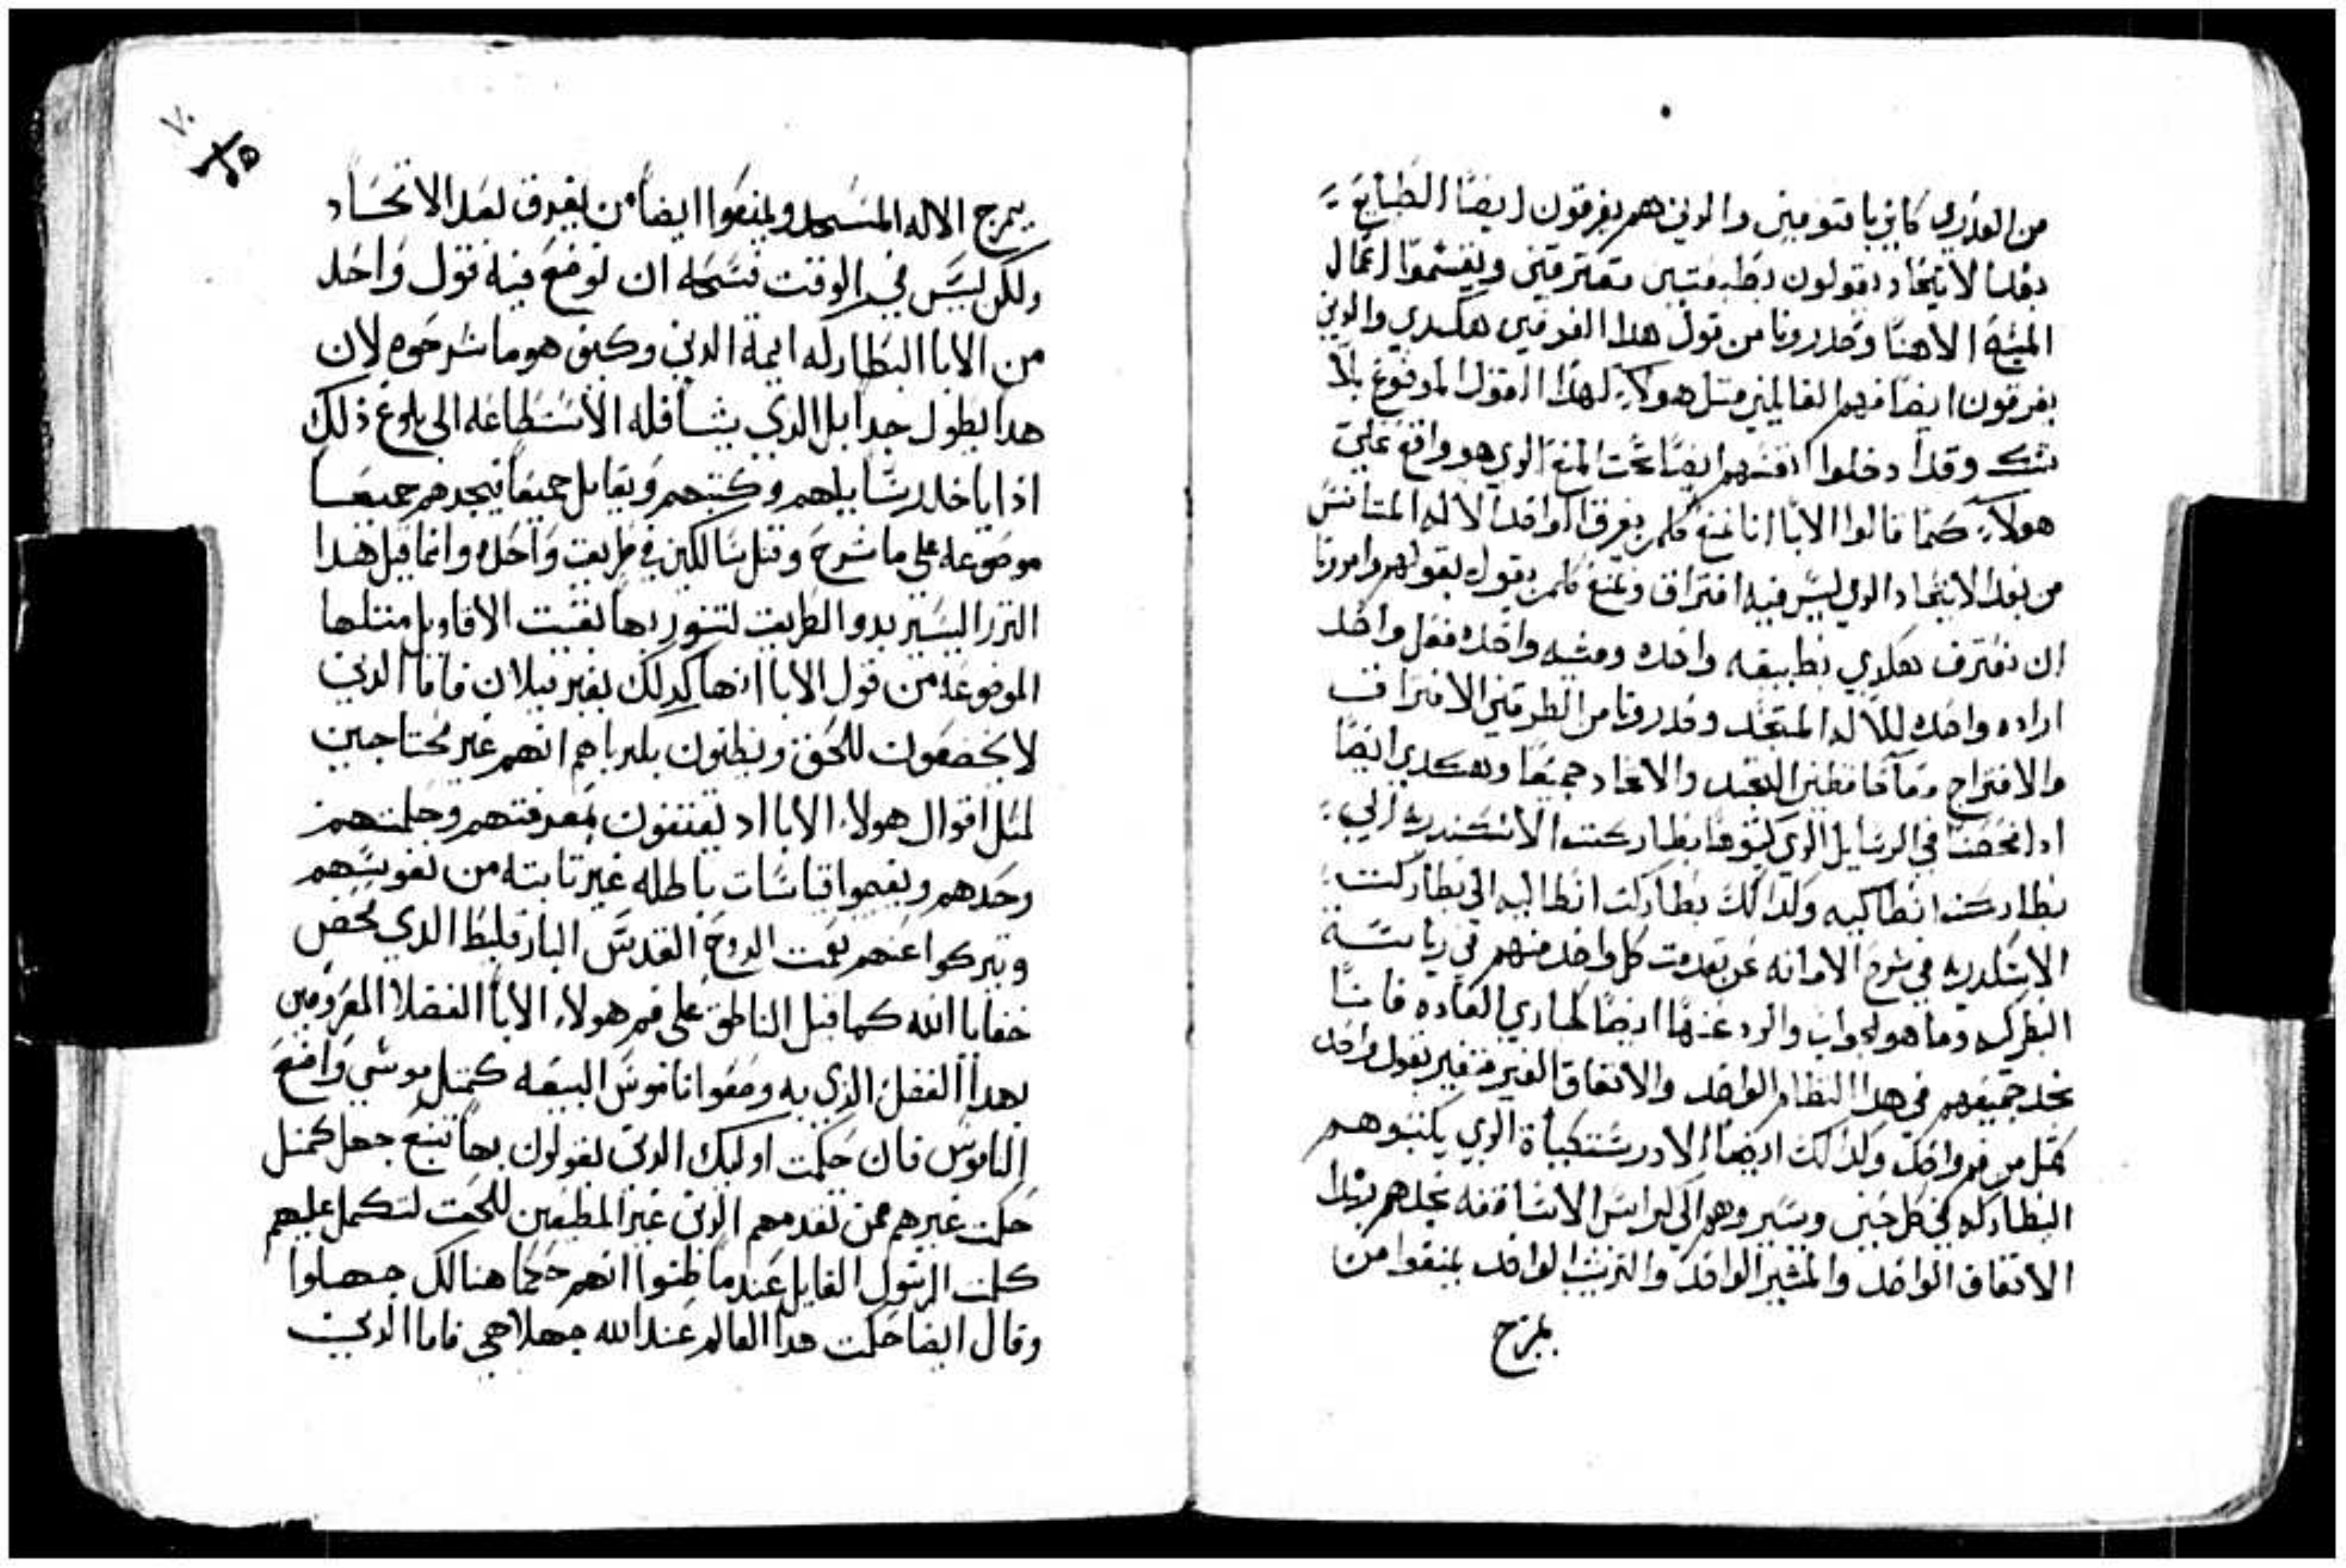 من العذري كاين با قنومين والدين هم يفرقون ايضا الطبايع
بعد الاتحاد يقولون بطبيعتين مفترقتين ويقسموا اعمال
المسيح الاهنا وحدرونا من قول هدا الفرقين هكدي والدين
يفرقون ايضا فهم القايلين متل هولاء لهدا القول المدفوع بلا
شك وقد ادخلوا انفسهم ايضا تحت المنع الدي هو واقع علي
هولاء كما قالوا الابا انا نمنع كلمن يفرق الواحد الاله المتانس
من بعد الاتحاد الدي ليس فيه افتراق ونمنع كلمن يقول بقولهم وامرونا
ان نعترف هكدي بطبيعه واحده ومشيه واحده فعل واحد
اراده واحده للاله المتجسد وحدرونا من الطرفين الافتراق
والامتزاج وما حافظين التجسد والاتحاد جميعا وهكدي ايضا
ادا فحصنا في الرسايل الدي كتبوها بطاركت الاسكندريه الي
بطاركت انطاكيه وكدالك بطاركت انطاكيه الي بطاركت
الاسكندريه في شرح الامانه عن تقدمت كل واحد منهم في رياسة
البطركيه وما هو الجواب والرد عنها ايضا لمجاري العاده فاننا
نجد جميعهم في هدا النظام الواحد والاتفاق الغير متغير بقول واحد
كمثل من فم واحد وكدالك ايضا الادرستيكيات الدي يكتبوهم
البطاركه في كل حين ويسيروهم الي كراسي الاساقفه نجدهم بهدا
الاتفاق الواحد والمسير الواحد والترتيب الواحد يمنعوا من
يمزج
يمزج الاله المتجسد ويمنعوا ايضا من يفرق بعد الاتحاد
ولكن ليس في الوقت فسحه ان نوضع فيه قول واحد
من الابا البطاركه ايمة الدين وكيف هو ما شرحوه لان
هدا يطول جدا بل الدي يشا فله الاستطاعه الى بلوغ ذلك
اذا ياخد رسايلهم وكتبهم ويقابل جميعا فيجدهم جميعا
موضوعه على ما شرح وقيل سالكين في طريق واحده وانما قيل هدا
النزر اليسير بدو الطريق لتنور بها بقيت الاقاويل متلها
الموضوعه من قول الابا انها كدلك بغير ميلان فاما الدين
لا يخضعون للحق ويظنون بكبرياهم انهم غير محتاجين
لمتل اقوال هولاء الابا اد يقتنعون بمعرفتهم وحكمتهم
وحدهم ويضعوا قياسات باطله غير تابته من نفوسهم
ويتركوا عنهم نعمت الروح القدس البارقليط الدي يفحص
خفايا الله كما قيل الناطق على فم هولاء الابا الفضلا المعروفين
بهدا الفضل الدي به وضعوا ناموس البيعه كمتل موسي واضع
الناموس فان حكمت اوليك الدين يقولون بها تتبع جهل كمتل
حكمت غيرهم ممن تقدمهم الدين غير المطيعين للحق لتكمل عليهم
كلمت الرسول القايل عندما ظنوا انهم حكما هنالك جهلوا
وقال ايضا حكمت هدا العالم عند الله جهلا هي فاما الدين